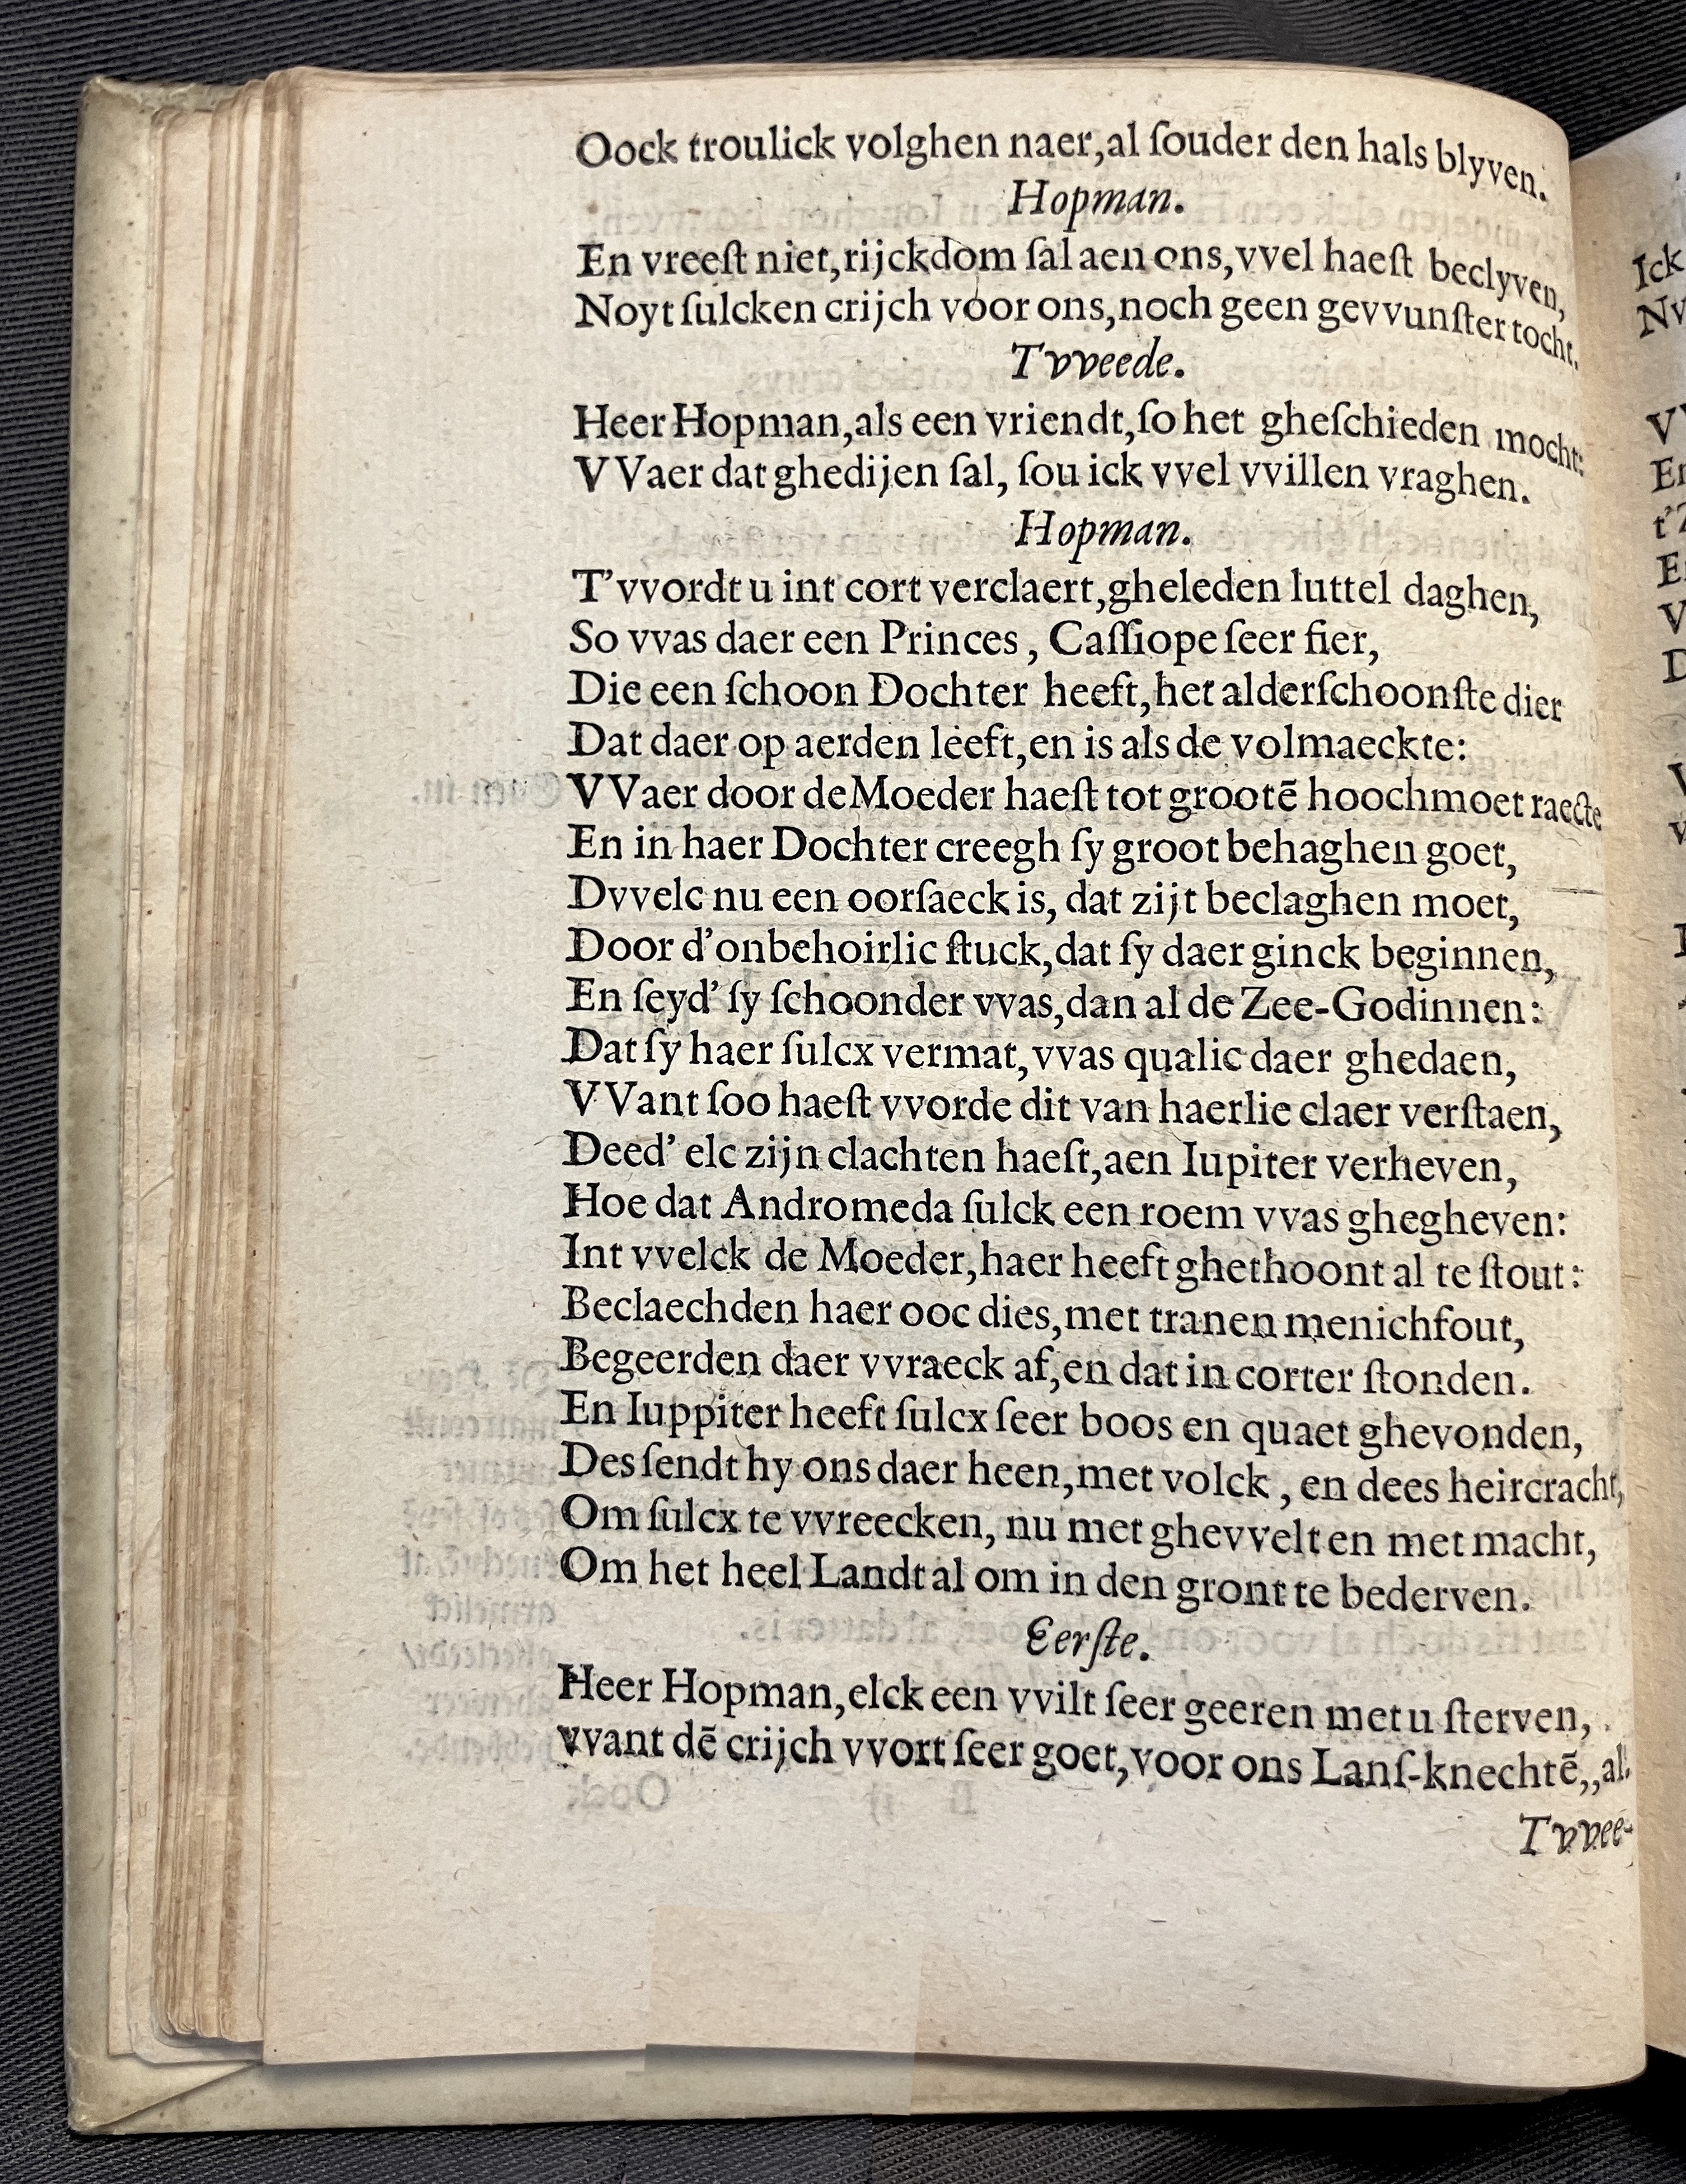 Oock troulick volghen naer,al ſouder den hals blyven.
Hopman.
En vreeſt niet,rijckdom ſal aen ons,vvel haeſt beclyven,
Noyt ſulcken crijch voor ons,noch geen gevvunſter tocht.
Tvveede.
Heer Hopman,als een vriendt,ſo het gheſchieden mocht:
VVaer dat ghedijen ſal, ſou ick vvel vvillen vraghen.
Hopman.
T’vvordt u int cort verclaert,gheleden luttel daghen,
So vvas daer een Princes , Caſſiope ſeer fier,
Die een ſchoon Dochter heeft,het alderſchoonſte dier
Dat daer op aerden leeft,en is als de volmaeckte:
VVaer door de Moeder haeſt tot grootē hoochmoet raecte
En in haer Dochter creegh ſy groot behaghen goet,
Dvvelc nu een oorſaeck is, dat zijt beclaghen moet,
Door d’onbehoirlic ſtuck,dat ſy daer ginck beginnen,
En ſeyd’ ſy ſchoonder vvas,dan al de Zee-Godinnen:
Dat ſy haer ſulcx vermat,vvas qualic daer ghedaen,
VVant ſoo haeſt vvorde dit van haerlie claer verſtaen,
Deed’ elc zijn clachten haeſt,aen Iupiter verheven,
Hoe dat Andromeda ſulck een roem vvas ghegheven:
Int vvelck de Moeder,haer heeft ghethoont al te ſtout:
Beclaechden haer ooc dies,met tranen menichfout,
Begeerden daer vvraeck af,en dat in corter ſtonden.
En Iuppiter heeft ſulcx ſeer boos en quaet ghevonden,
Des ſendt hy ons daer heen,met volck , en dees heircracht,
Om ſulcx te vvreecken, nu met ghevvelt en met macht,
Om het heel Landt al om in den gront te bederven.
Eerſte.
Heer Hopman,elck een vvilt ſeer geeren met u ſterven,
vvant dē crijch vvort ſeer goet,voor ons Lanſ-knechtē,,al.
Tvvee-
Ick